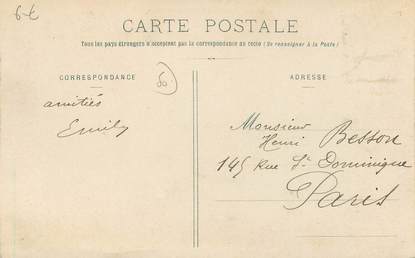 6€
CARTE POSTALE
Tous les pays étrangers n'acceptent pas la correspondance au recto (Se renseigner à la Poste)
CORRESPONDANCE
ADRESSE
amitiés
Emily
Monsieur
Henri Besson
145 Rue St Dominique
Paris